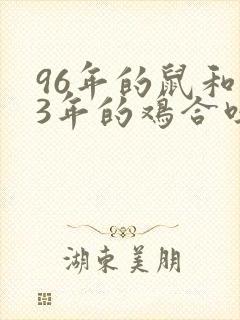 96年的鼠和
3年的鸡合
湖东美朋